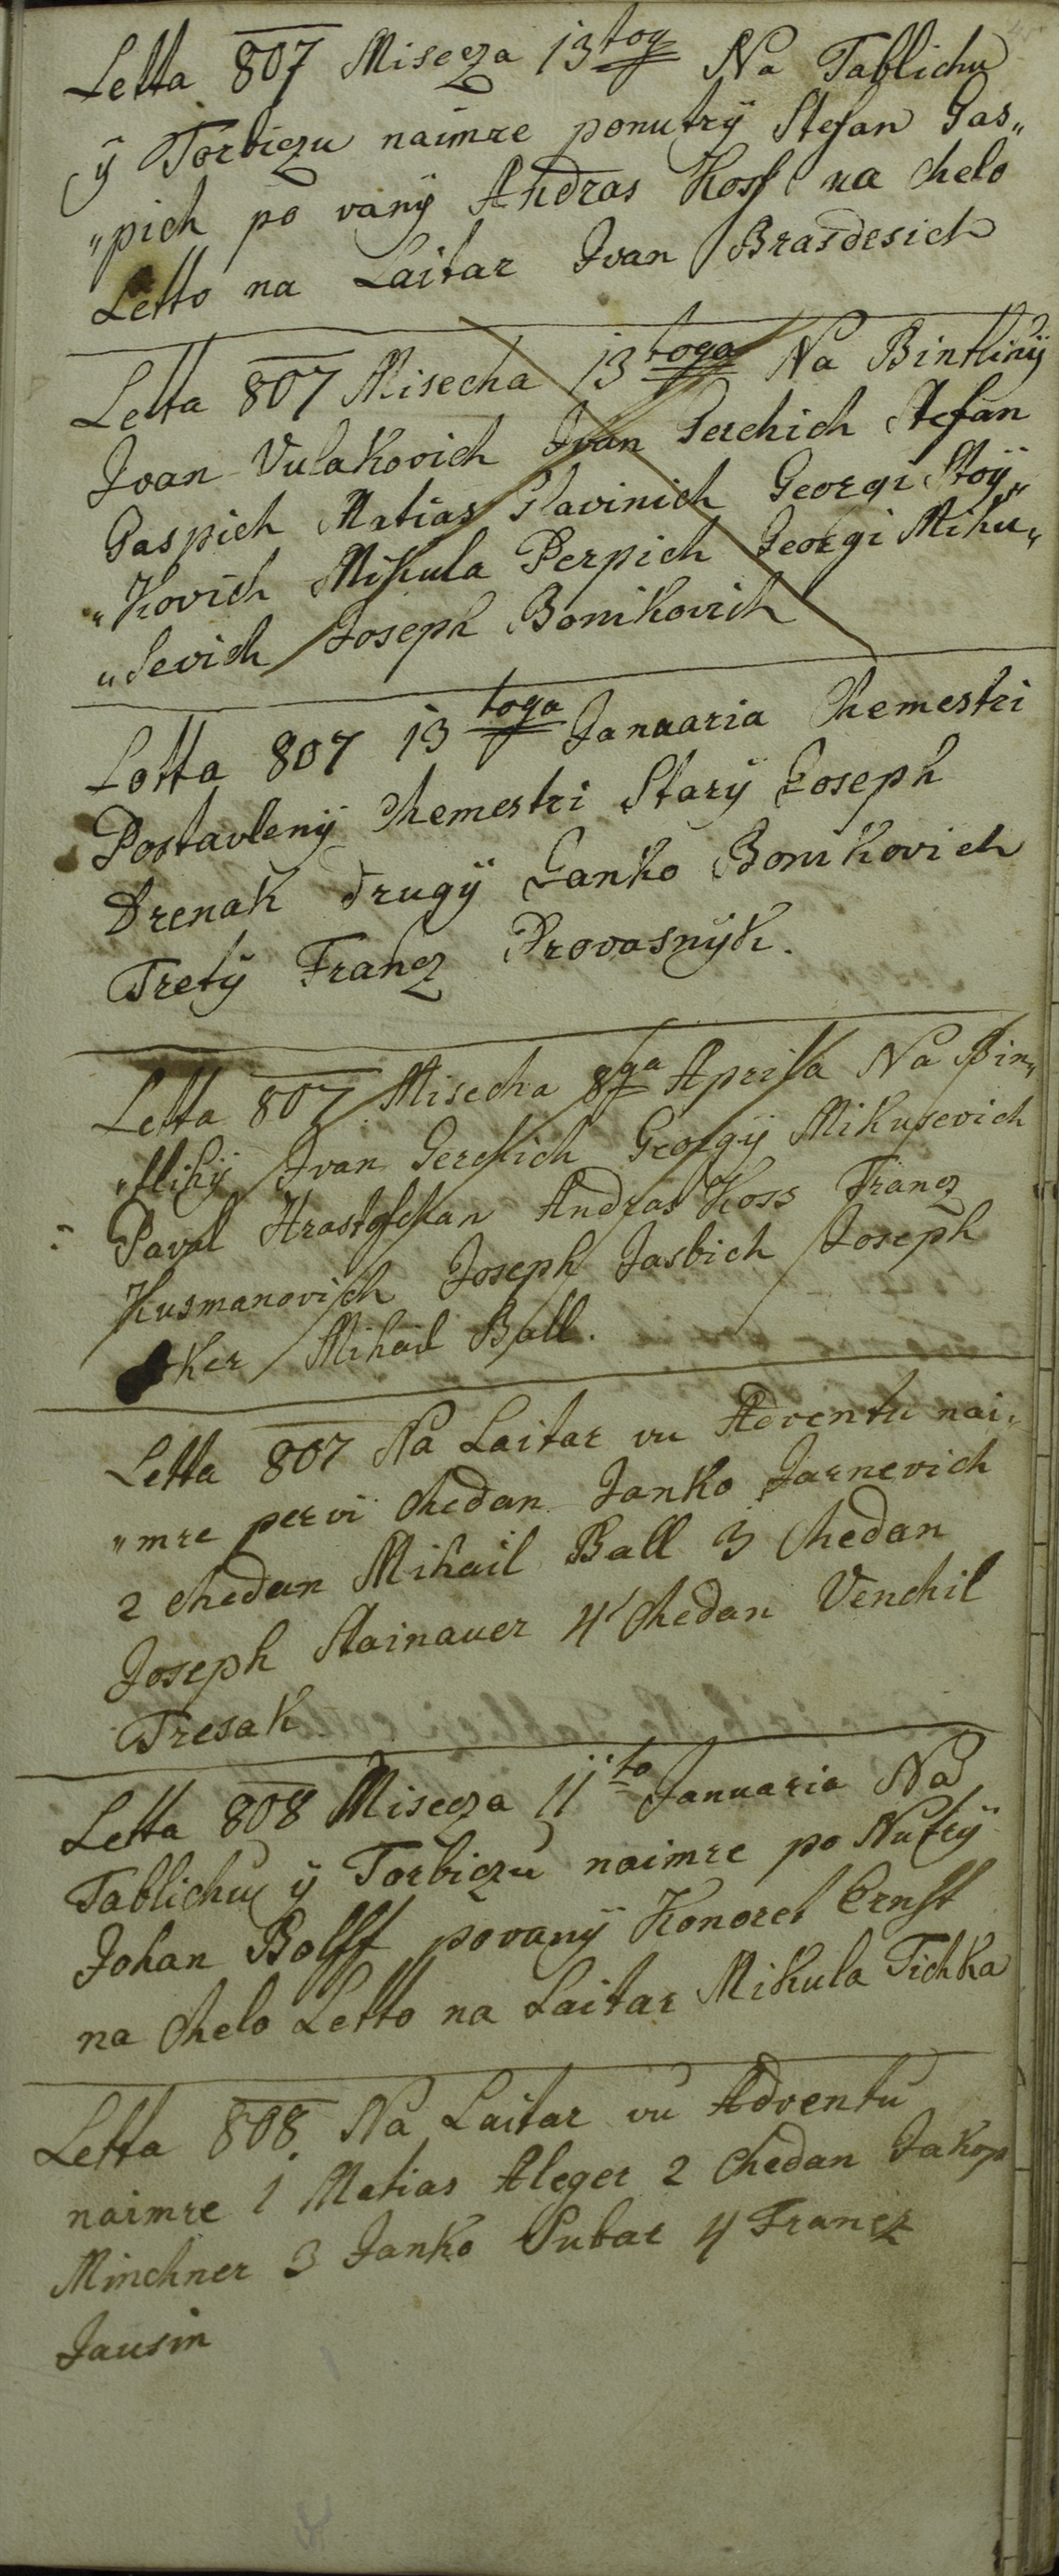 Letta 807 Misecza 13tog Na Tablichu
ÿ Torbiczu naimre ponutrÿ Stefan Gas„
„pich po vanÿ Andras Koss na chelo
Letto na Laitar Ivan Brasdesich
Letta 807 Misecha 13toga Na Bintlinÿ
Ivan Vulakovich Ivan Gerchich Stefan
Gaspich Matias Slavinich Georgi Stoÿ„
„Kovich Mikula Perpich Georgi Miku„
„sevich Joseph Bonikovich
Lotta 807 13toga Januaria Chemestri
Postavlenÿ Chemestri Starÿ Joseph
Drenak drugÿ Janko Bonikovich
Tretÿ Francz Provasnÿk.
Letta 807 Misecha 8ga Aprila Na Bin„
„tlihÿ Ivan Gerchich Georgÿ Mikusevich
Paval Hrastofchan Andras Koss Francz
Kusmanovich Joseph Jasbich Joseph
ker Mihail Ball.
Letta 807 Na Laitar vu Adventu nai„
„mre pervi Chedan Janko Jarnevich
2 chedan Mihail Ball 3 Chedan
Joseph Stainauer 4 Chedan Venchil
Tresak
Letta 808 Misecza 11to Januaria Na
Tablichu ÿ Torbiczu naimre po Nutrÿ
Johan Bolff povanÿ Konoret Ernst
na Chelo Letto na Laitar Mikula Tichka
Letta 808 Na Laitar vu Adventu
naimre 1 Matias Aleger 2 Chedan Jakop
Minchner 3 Janko Pubar 4 Francz
Jausin